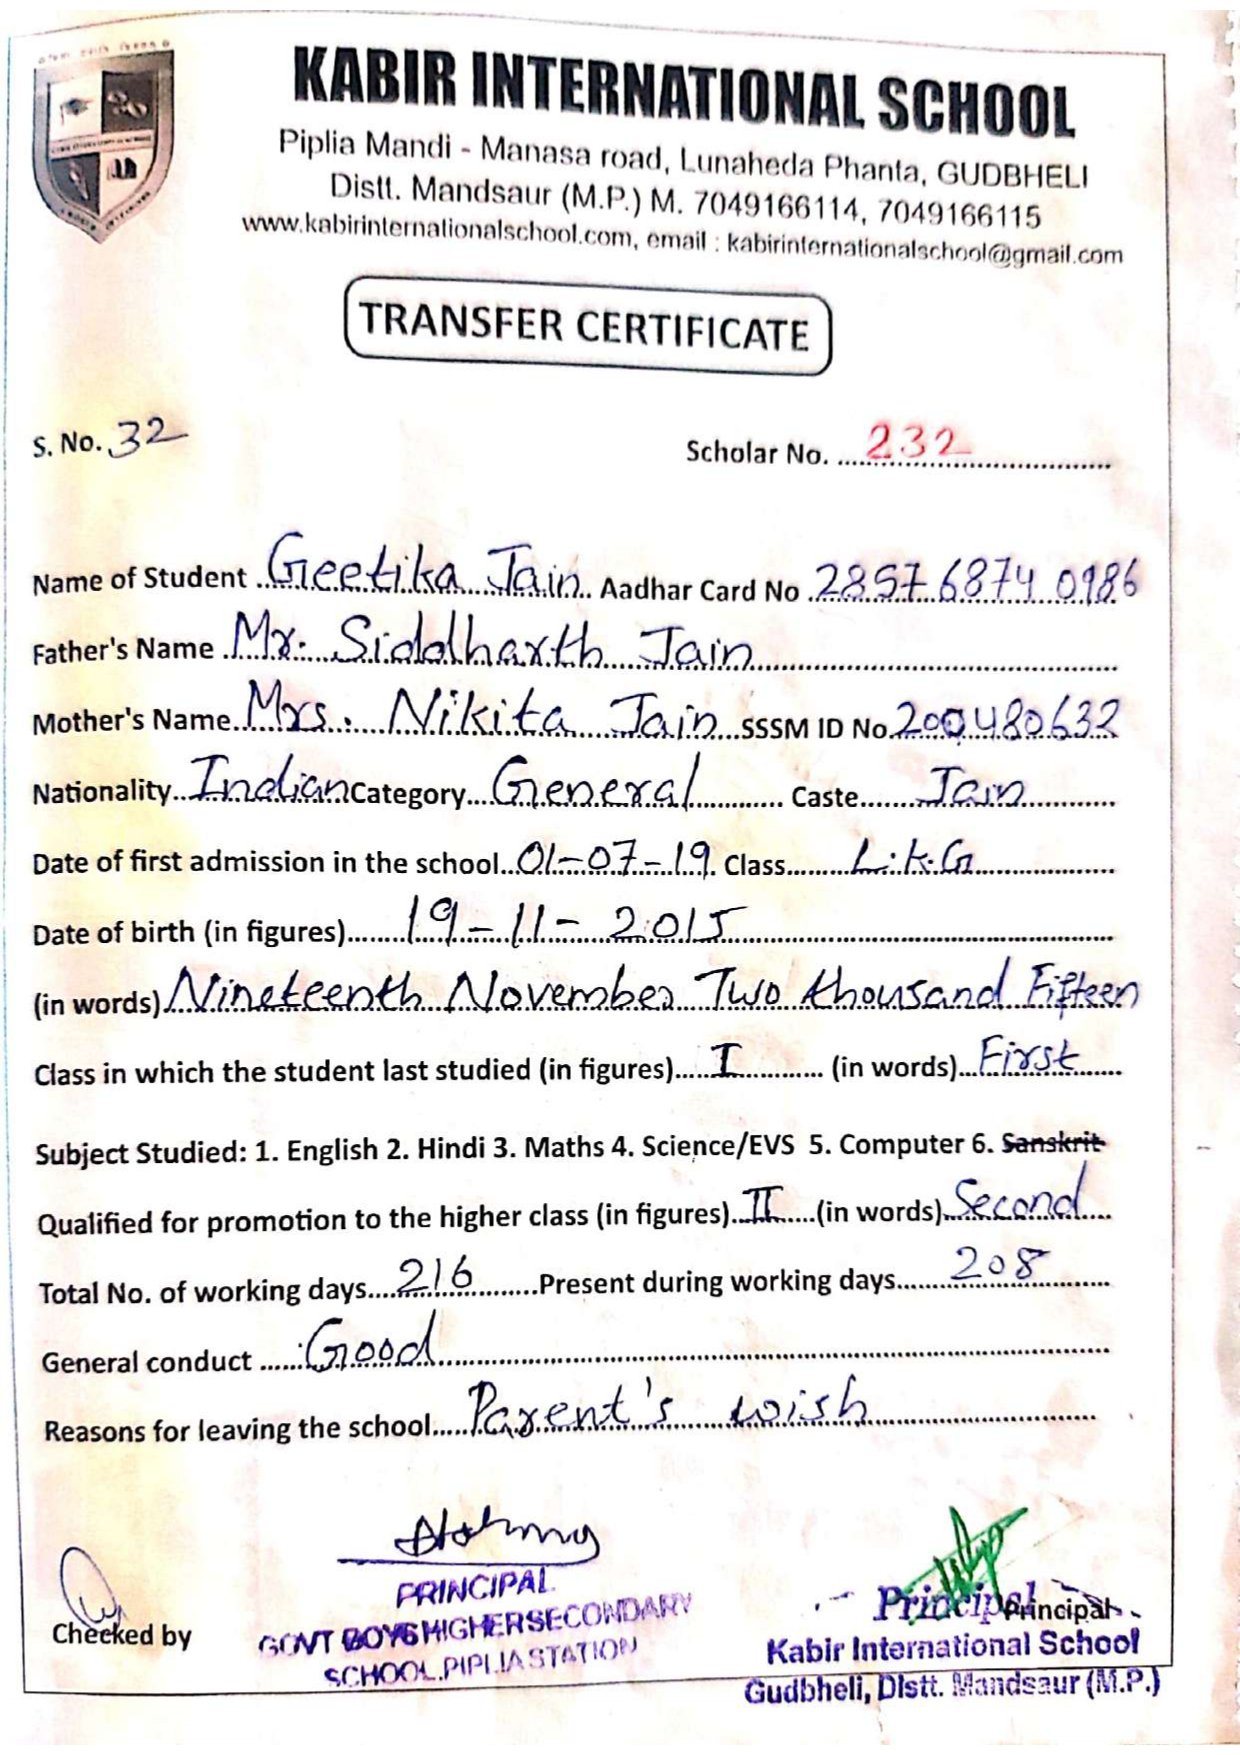 KABIR INTERNATIONAL SCHOOL
Piplia Mandi - Manasa road, Lunaheda Phanta, GUDBHELI
Distt. Mandsaur (M.P.) M. 7049166114, 7049166115
www.kabirinternationalschool.com, email : kabirinternationalschool@gmail.com
TRANSFER CERTIFICATE
S. No. 32 Scholar No. 232
Name of Student Geetika Jain Aadhar Card No 2857 6874 0986
Father's Name Mr. Siddharth Jain
Mother's Name Mrs. Nikita Jain SSSM ID No. 200480632
Nationality Indian Category General Caste Jain
Date of first admission in the school 01-07-19 Class L.K.G
Date of birth (in figures) 19-11-2015
(in words) Nineteenth November Two thousand Fifteen
Class in which the student last studied (in figures) I (in words) First
Subject Studied: 1. English 2. Hindi 3. Maths 4. Science/EVS 5. Computer 6. Sanskrit
Qualified for promotion to the higher class (in figures) II (in words) Second
Total No. of working days 216 Present during working days 208
General conduct Good
Reasons for leaving the school Parent's wish
Checked by
PRINCIPAL
GOVT BOYS HIGHERSECONDARY
SCHOOL.PIPLIA STATION
Principal
Principal
Kabir International School
Gudbheli, Distt. Mandsaur (M.P.)